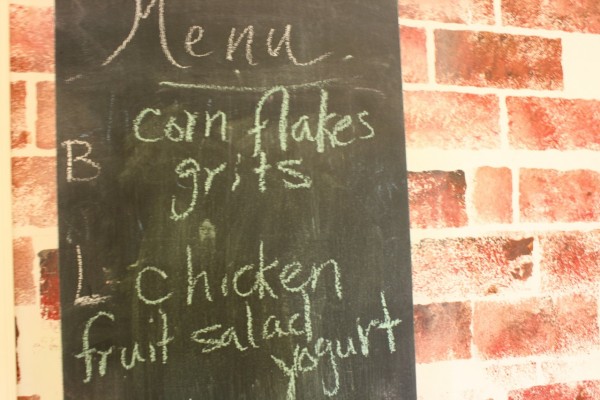 Menu
corn flakes
B
grits
L chicken
fruit salad
yogurt